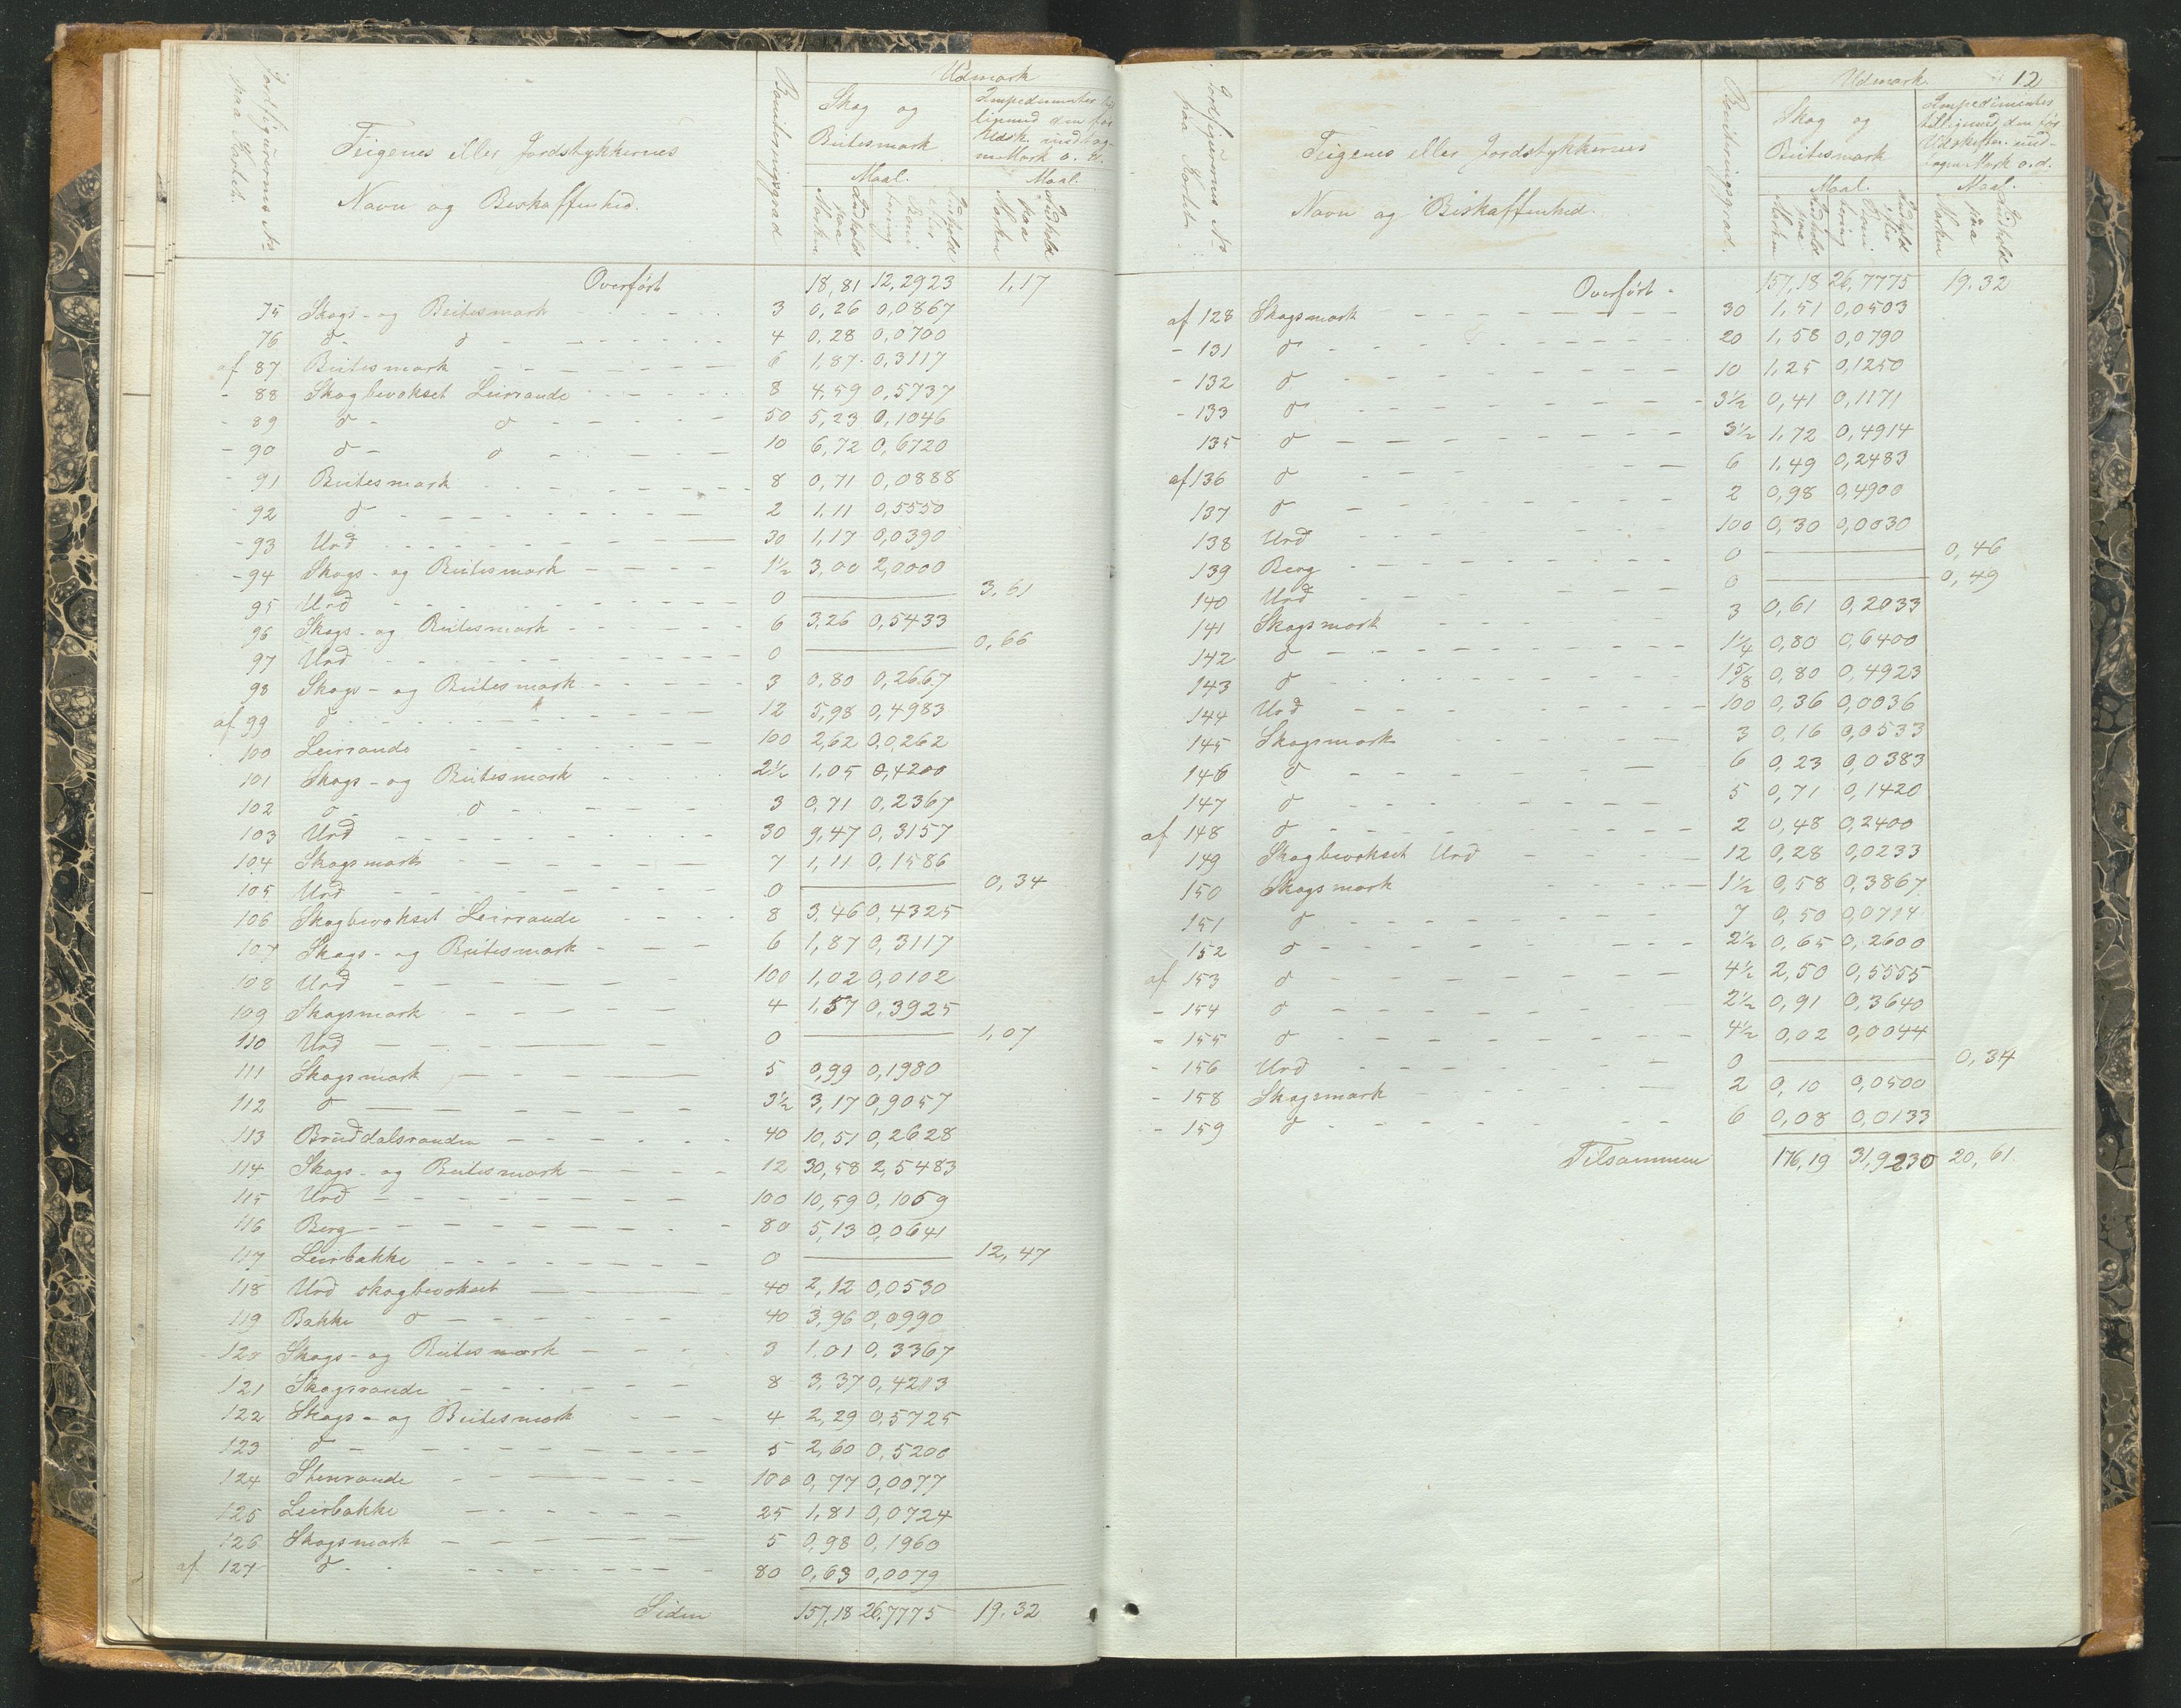 Udmark
Jordfigurernes No paa Kartet.
Teigenes eller Jordstykkernes
Navn og Beskaffenhed.
Boniteringsgrad
Skog og Beitesmark
Maal.
Indhold paa Marken
Indhold efter Bonitering
Maal.
Indhold paa Marken
Overført 18,81 12,2923 1,17
75 Skogs- og Beitesmark 3 0,26 0,0867
76 d- d 4 0,28 0,0700
af 87 Beitesmark 6 1,87 0,3117
- 88 Skogbevokset Leirraude 8 4,59 0,5737
- 89 d- d 50 5,23 0,1046
- 90 d- d 10 6,72 0,6720
- 91 Beitesmark 8 0,71 0,0888
- 92 d 2 1,11 0,5550
- 93 Urd 30 1,17 0,0390
- 94 Skogs- og Beitesmark 1½ 3,00 2,0000
95 Urd 0 3,61
96 Skogs- og Beitesmark 6 3,26 0,5433
97 Urd 0 0,66
98 Skogs- og Beitesmark 3 0,80 0,2667
af 99 d 12 5,98 0,4983
100 Leirraude 100 2,62 0,0262
101 Skogs- og Beitesmark 2½ 1,05 0,4200
102 d- d 3 0,71 0,2367
103 Urd 30 9,47 0,3157
104 Skogsmark 7 1,11 0,1586
105 Urd 0 0,34
106 Skogbevokset Leirraude 8 3,46 0,4325
107 Skogs- og Beitesmark 6 1,87 0,3117
108 Urd 100 1,02 0,0102
109 Skogsmark 4 1,57 0,3925
110 Urd 0 1,07
111 Skogsmark 5 0,99 0,1980
112 d 3½ 3,17 0,9057
113 Bruddalsrauden 40 10,51 0,2628
114 Skogs- og Beitesmark 12 30,58 2,5483
115 Urd 100 10,59 0,1059
116 Berg 80 5,13 0,0641
117 Leirbakke 0 12,47
118 Urd skogbevokset 40 2,12 0,0530
119 Bakke d 40 3,96 0,0990
120 Skogs- og Beitesmark 3 1,01 0,3367
121 Skogsraude 8 3,37 0,4213
122 Skogs- og Beitesmark 4 2,29 0,5725
123 d 5 2,60 0,5200
124 Stenraude 100 0,77 0,0077
125 Leirbakke 25 1,81 0,0724
126 Skogsmark 5 0,98 0,1960
af 127 d 80 0,63 0,0079
Siden 157,18 26,7775 19,32
12
Udmark
Jordfigurernes No paa Kartet
Teigenes eller Jordstykkernes
Navn og Beskaffenhed.
Boniteringsgrad.
Skog og Beitesmark
Maal.
Indhold paa Marken
Indhold efter Bonitering
Maal.
Indhold paa Marken
Overført 157,18 26,7775 19,32
af 128 Skogsmark 30 1,51 0,0503
- 131 d 20 1,58 0,0790
- 132 d 10 1,25 0,1250
- 133 d 3½ 0,41 0,1171
135 d 3½ 1,72 0,4914
af 136 d 6 1,49 0,2483
137 d 2 0,98 0,4900
138 Urd 100 0,30 0,0030
139 Berg 0 0,46
140 Urd 0 0,49
141 Skogsmark 3 0,61 0,2033
142 d 1¼ 0,80 0,6400
143 d 1⅝ 0,80 0,4923
144 Urd 100 0,36 0,0036
145 Skogsmark 3 0,16 0,0533
146 d 6 0,23 0,0383
147 d 5 0,71 0,1420
af 148 d 2 0,48 0,2400
149 Skogbevokset Urd 12 0,28 0,0233
150 Skogsmark 1½ 0,58 0,3867
151 d 7 0,50 0,0714
152 d 2½ 0,65 0,2600
af 153 d 4½ 2,50 0,5555
- 154 d 2½ 0,91 0,3640
- 155 d 4½ 0,02 0,0044
- 156 Urd 0 0,34
- 158 Skogsmark 2 0,10 0,0500
- 159 d 6 0,08 0,0133
Tilsammen 176,19 31,9230 20,61.